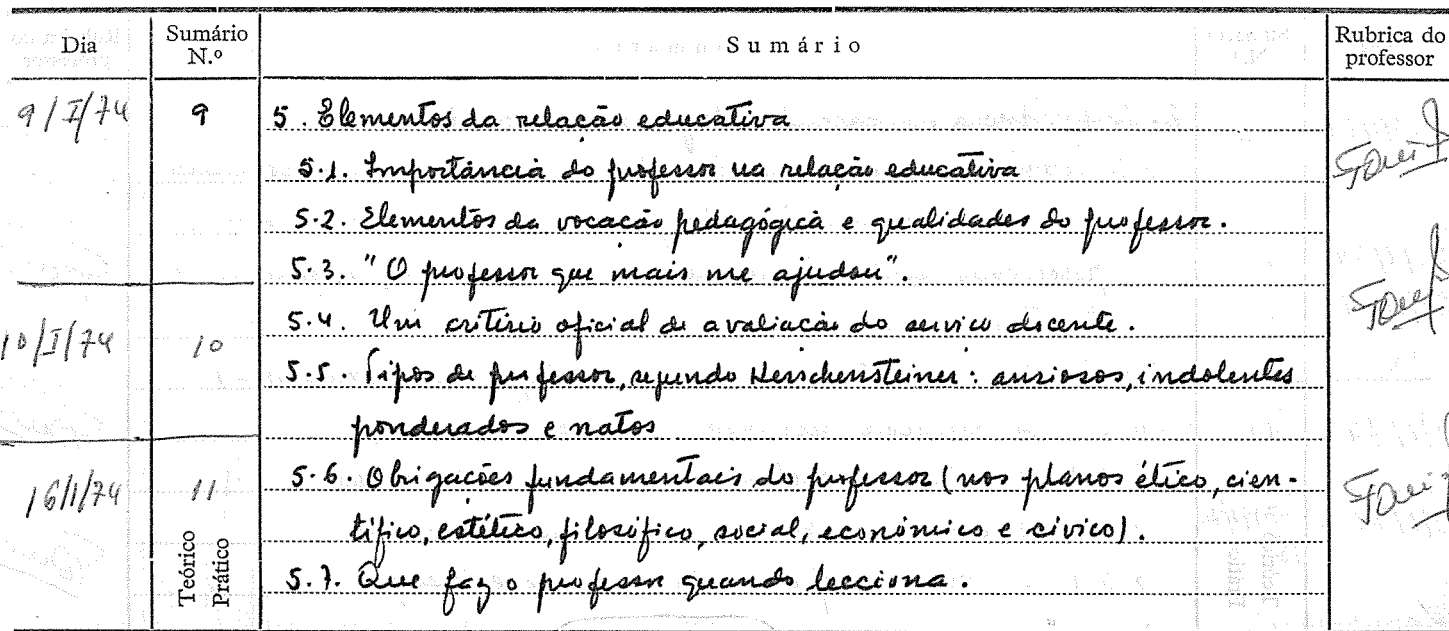 Dia
Sumário N.º
Sumário
Rubrica do professor
9/I/74 9 5. Elementos da relação educativa
5.1. Importância do professor na relação educativa
5.2. Elementos da vocação pedagógica e qualidades do professor.
5.3. "O professor que mais me ajudou".
10/I/74 10 5.4. Um critério oficial de avaliação do serviço docente.
5.5. Tipos de professor, segundo Kerschensteiner: ansiosos, indolentes
ponderados e natos
16/1/74 11 5.6. Obrigações fundamentais do professor (nos planos ético, cien-
tífico, estético, filosófico, social, económico e cívico).
Teórico
Prático
5.7. Que faz o professor quando lecciona.